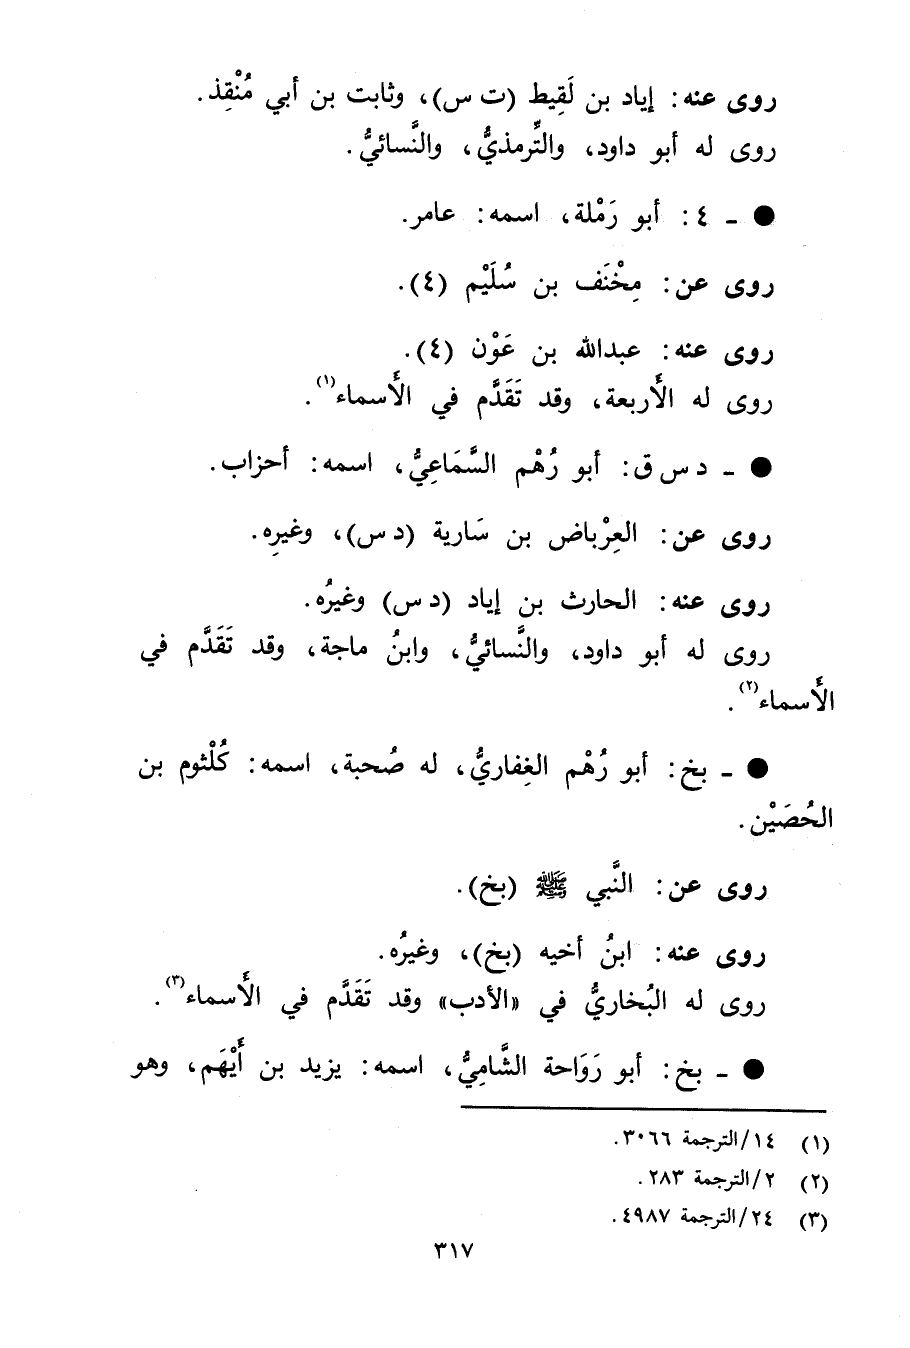 روى عنه: إياد بن لَقِيط (ت س)، وثابت بن أبي مُنْقِذ.
روى له أبو داود، والتِّرمذيُّ، والنَّسائيُّ.
● ـ ٤: أبو رَمْلة، اسمه: عامر.
روى عن: مِخْنَف بن سُلَيْم (٤).
روى عنه: عبدالله بن عَوْن (٤).
روى له الأَربعة، وقد تَقَدَّم في الأَسماء(١).
● ـ د س ق: أبو رُهْم السَّمَاعِيُّ، اسمه: أحزاب.
روى عن: العِرْباض بن سَارية (د س)، وغيرِه.
روى عنه: الحارث بن إياد (د س) وغيرُه.
روى له أبو داود، والنَّسائيُّ، وابنُ ماجة، وقد تَقَدَّم في
الأَسماء(٢).
● ـ بخ: أبو رُهْم الغِفاريُّ، له صُحبة، اسمه: كُلْثوم بن
الحُصَيْن.
روى عن: النَّبي ﷺ (بخ).
روى عنه: ابنُ أخيه (بخ)، وغيرُه.
روى له البُخاريُّ في «الأدب» وقد تَقَدَّم في الأَسماء(٣).
● ـ بخ: أبو رَوَاحة الشَّامِيُّ، اسمه: يزيد بن أَيْهَم، وهو
(١) ١٤/الترجمة ٣٠٦٦.
(٢) ٢/الترجمة ٢٨٣.
(٣) ٢٤/الترجمة ٤٩٨٧.
٣١٧